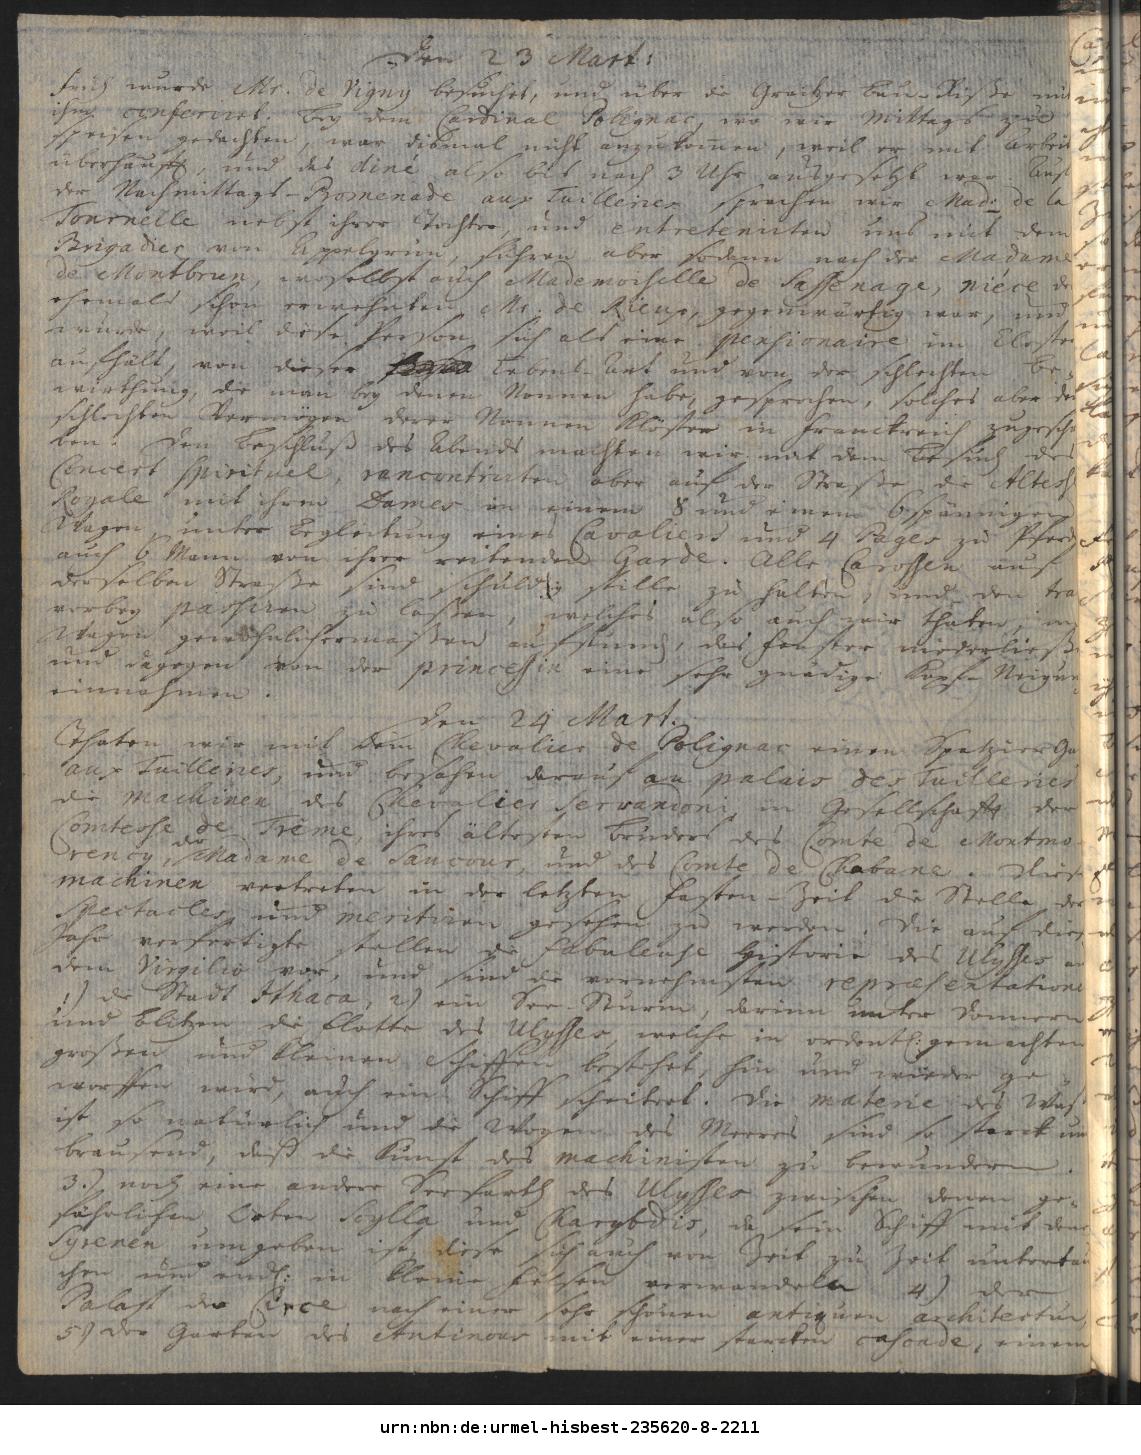 Den 23 Mart:
Früh wurde Mr. de Vigny besuchet, und über die Graitzer Bau-Riße mit
ihm conferiret. Bey dem Cardinal Polignac, wo wir Mittags zu
speisen gedachten, war dismal nicht anzukom̄en, weil er mit Arbeit
überhäufft, und das diné also bis nach 3 Uhr ausgesetzt war. Auf
der Nachmittags-Promenade aux Tuilleries sprachen wir Mad: de la
Tournelle nebst ihrer Tochter, und entretenirten uns mit dem
Brigadier von Appelgrün, fuhren aber sodann nach der Madame
de Montbrun, woselbst auch Mademoiselle de Sassenage, niéce des
ehemals schon erwehnten Mr. de Rieux, gegenwärtig war, und
wurde, weil diese Person sich als eine pensionaire im Closter
aufhält, von dieser Lebens-Art und von der schlechten Be-
wirthung, die man bey denen Nonnen habe, gesprochen, solches aber dem
schlechten Vermögen derer Nonnen Klöster in Franckreich zugeschrie-
ben. Den Beschluß des Abends machten wir mit dem Besuch des
Concert spirituel, rancontrirten aber auf der Straße die Altesse
Royale mit ihren Dames in einem 8 und einem 6spännigen
Wagen, unter Begleitung eines Cavaliers und 4 Pages zu Pferd
auch 6 Mann von ihrer reitenden Garde. Alle Carossen auf
derselben Straße sind schuldig stille zu halten, und den
vorbey passiren zu laßen, welches also auch wir thaten, im
Wagen gewöhnlichermaßen aufstund, das Fenster niederließ
und dagegen von der princessin eine sehr gnädige Kopf-Neigung
einnahmen.
Den 24 Mart.
Thaten wir mit dem Chevalier de Polignac einen Spatzier-Gang
aux Tuilleries, und besahen darauf au palais des Tuilleries
die machinen des Chevalier Servandoni, in Gesellschafft der
Comtesse de Trême, ihres ältesten Bruders des Comte de Montmo-
rency, der Madame de Saucour, und des Comte de Chabane. Diese
machinen vertreten in der letzten Fasten-Zeit die Stelle der
Spectacles und meritiren gesehen zu werden. Die auf dieses
Jahr verfertigte stellen die fabuleuse Historie des Ulysses aus
dem Virgilio vor, und sind die vornehmsten repræsentationes
1) die Stadt Ithaca, 2) ein See-Sturm, darinn unter Donnern
und Blitzen die Flotte des Ulysses, welche in ordentl: gemachten
großen und kleinen Schiffen bestehet, hin und wieder ge-
worffen wird, auch ein Schiff scheitert. Die materie des Waßers
ist so natürlich und die Wogen des Meeres sind so starck und
brausend, daß die Kunst des machinisten zu bewundern.
3.) noch eine andere Seefarth des Ulysses zwischen denen ge-
fährlichen Orten Scylla und Charybdis, da sein Schiff mit denen
Syrenen umgeben ist, diese sich auch von Zeit zu Zeit untertau-
chen und endl: in kleine Felsen verwandeln 4) der
Palast der Circe nach einer sehr schönen antiquen architectur,
5) der Garten des Antinous mit einer starcken cascade, einem
urn:nbn:de:urmel-hisbest-235620-8-2211